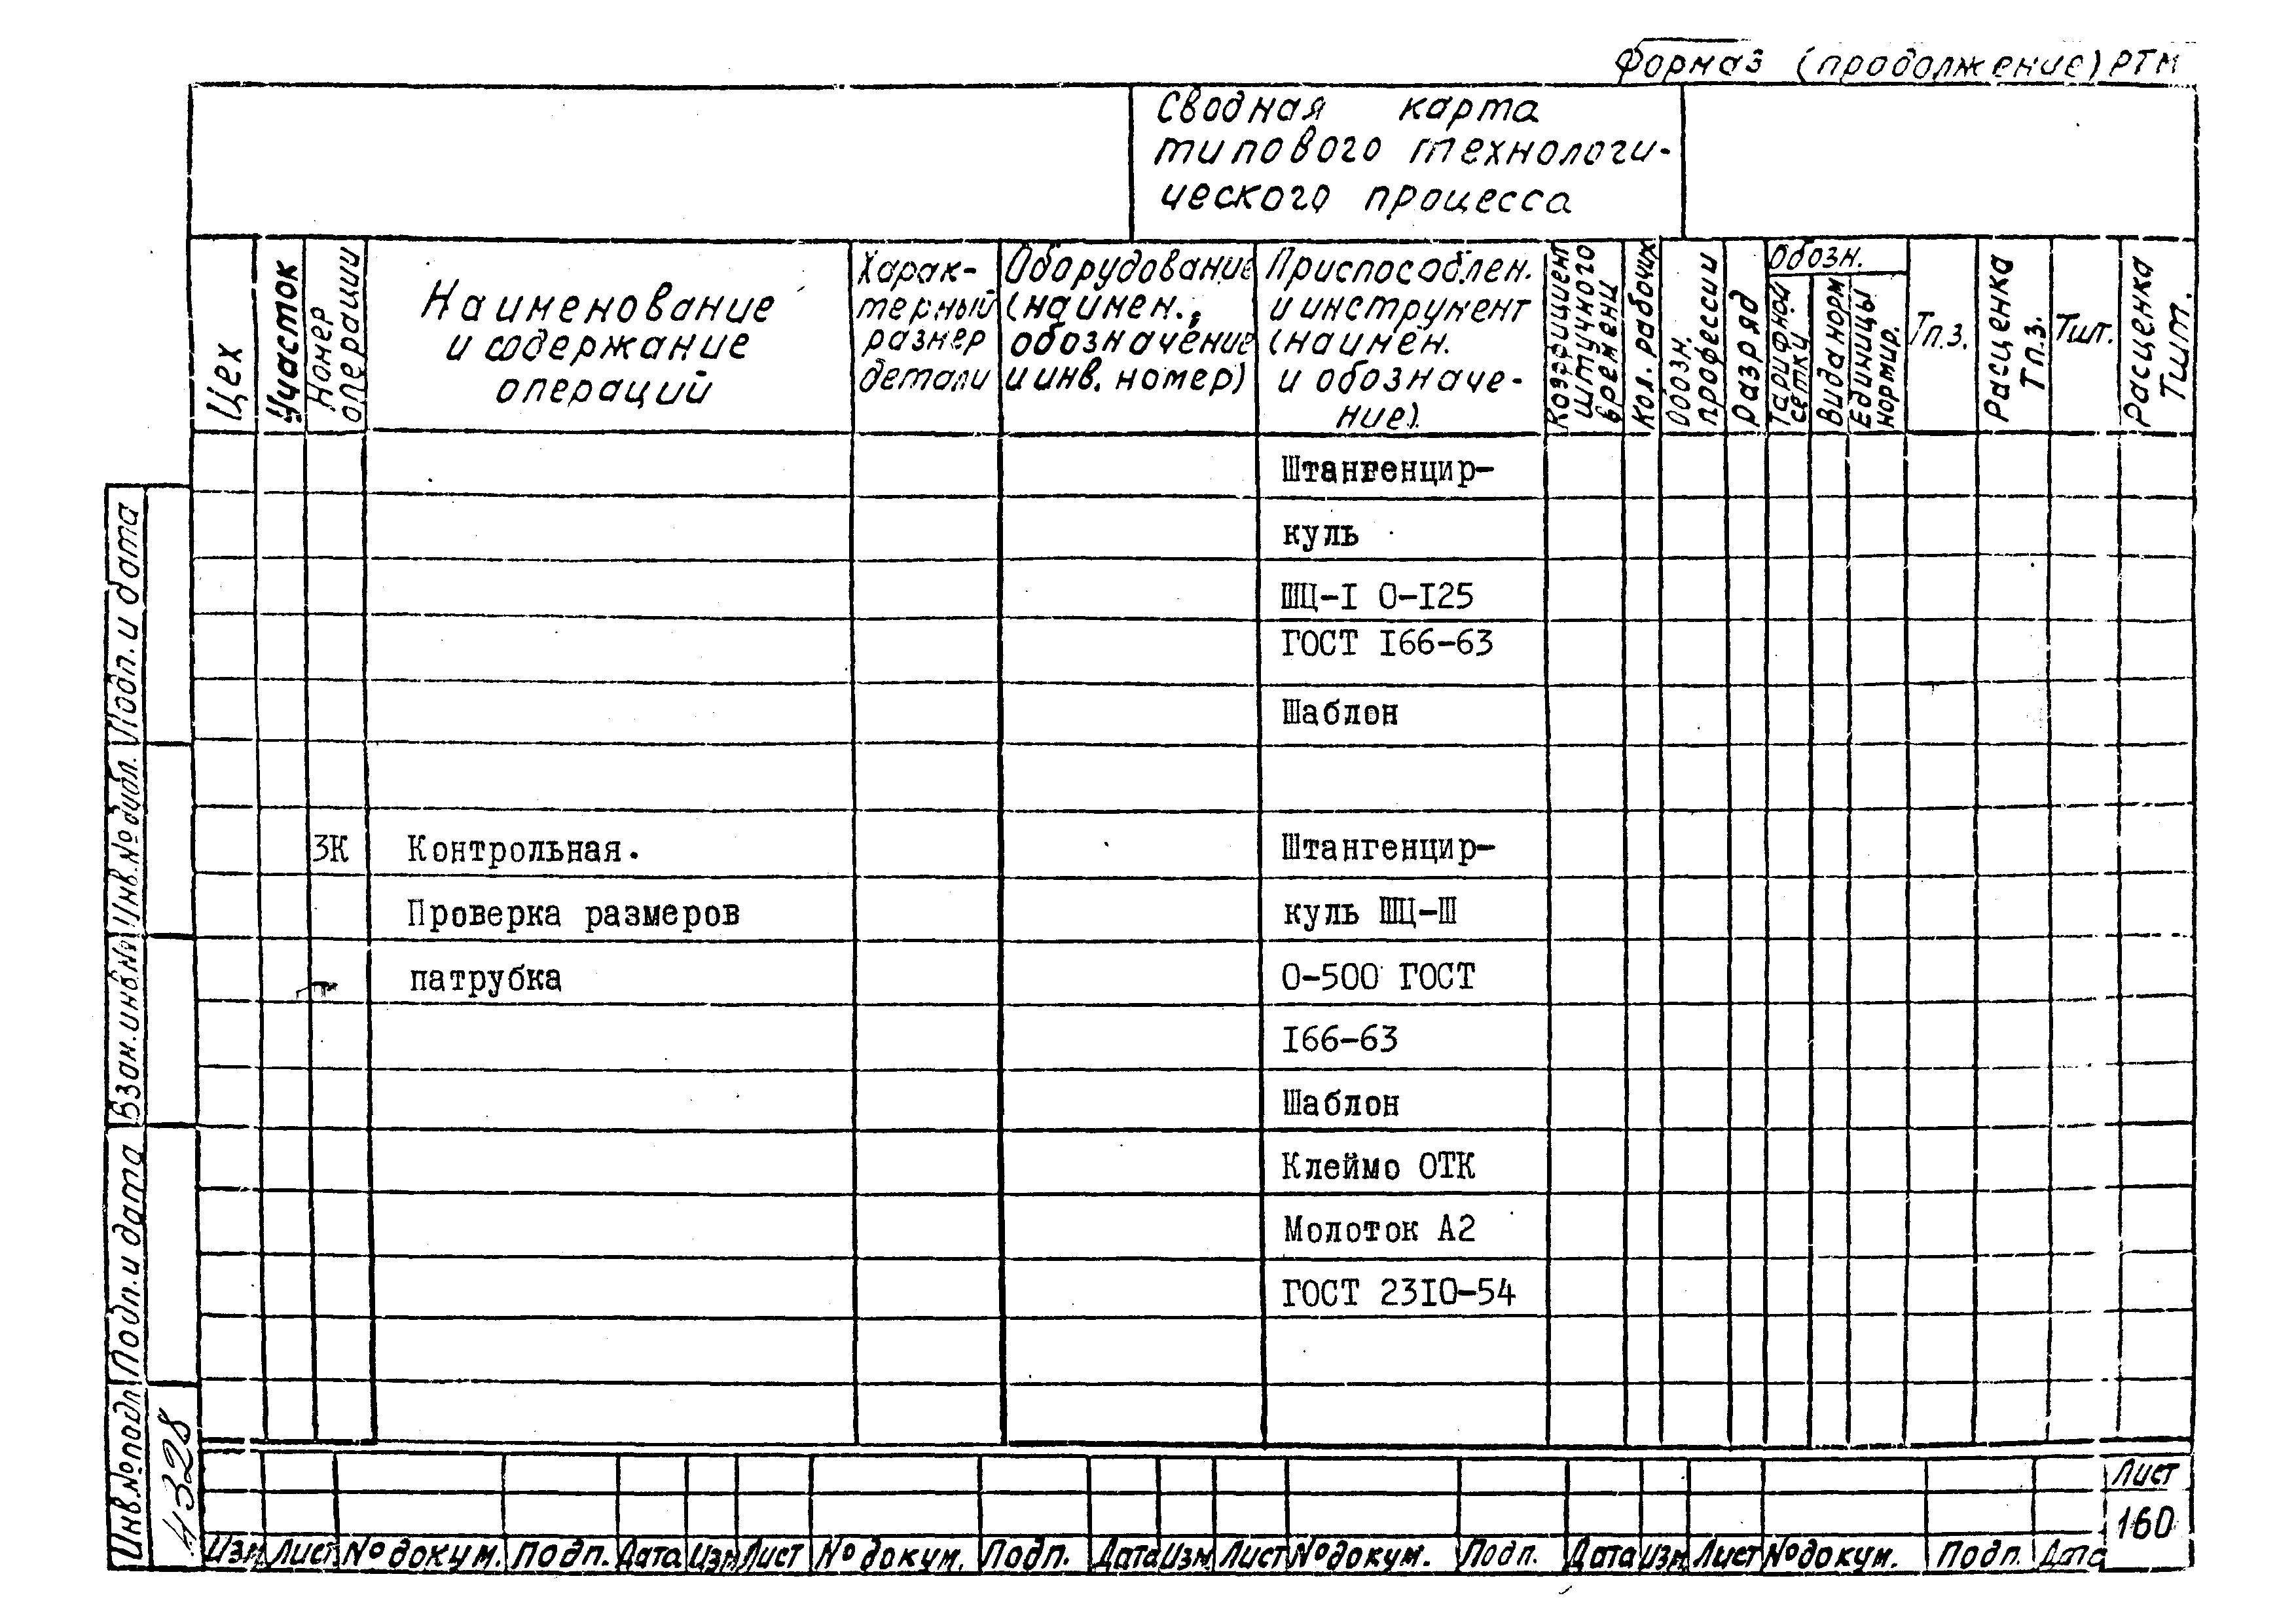 Форма 3 (продолжение) РТМ
Сводная карта
типового технологи-
ческого процесса
Цех
Участок
Номер
операции
Наименование
и содержание
операций
Харак-
терный
размер
детали
Оборудование
(наимен.,
обозначение
и инв. номер)
Приспособлен.
и инструмент
(наимен.
и обозначе-
ние).
Коэффициент
штучного
времени
Кол. рабочих
Обозн.
профессии
Разряд
Обозн.
Тарифной
сетки
Вида норм
Единицы
нормир.
Тп.з.
Расценка
Тп.з.
Тшт.
Расценка
Тшт.
Штангенцир-
куль
ШЦ-I 0-I25
ГОСТ I66-63
Шаблон
3К Контрольная. Штангенцир-
Проверка размеров куль ШЦ-Ш
патрубка 0-500 ГОСТ
I66-63
Шаблон
Клеймо ОТК
Молоток А2
ГОСТ 23I0-54
Подп. и дата
Инв.№ дубл.
Взам. инв.№
Подп. и дата
Инв.№ подл
4328
Лист
160
Изм Лист № докум. Подп. Дата Изм Лист № докум. Подп. Дата Изм. Лист № докум. Подп. Дата Изм. Лист № докум. Подп. Дата